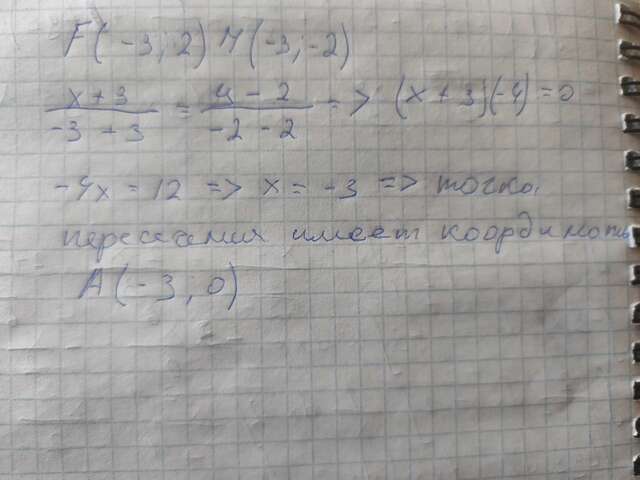 F(-3; 2) M(-3; -2)
x+3/-3+3 = y-2/-2-2 => (x+3)(-4)=0
-4x=12 => x=-3 => точка
пересечения имеет координаты
A(-3, 0)